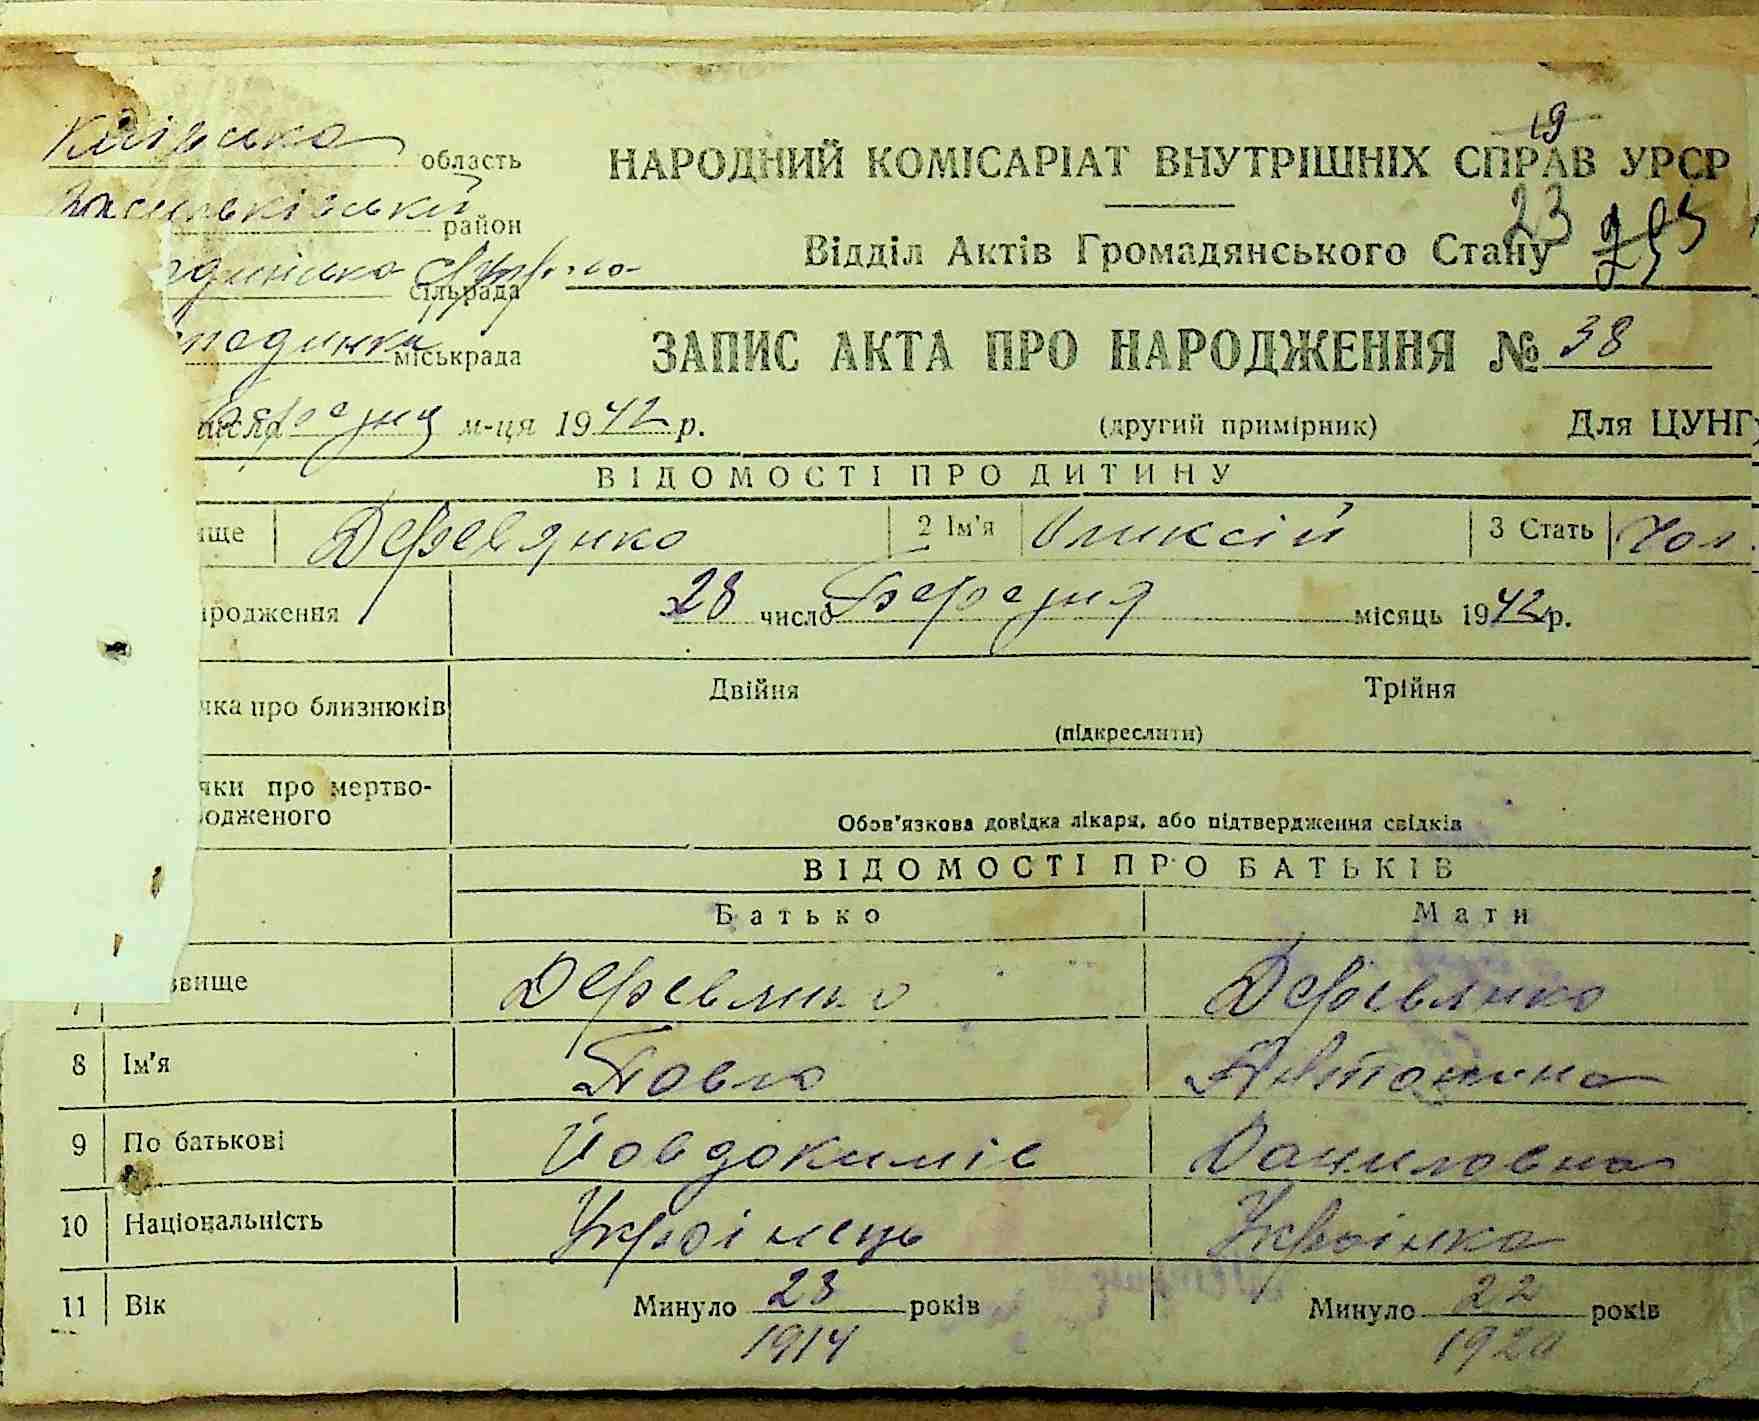 Київська область
19
НАРОДНИЙ КОМІСАРІАТ ВНУТРІШНІХ СПРАВ УРСР
Васильківський район
23
Відділ Актів Громадянського Стану
сільрада
ЗАПИС АКТА ПРО НАРОДЖЕННЯ № 38
міськрада
березня м-ця 1942 р.
(другий примірник)
Для ЦУНГ
ВІДОМОСТІ ПРО ДИТИНУ
ище Деревянко 2 Ім'я Оликсій 3 Стать Чол.
ародження 28 число Березня місяць 1942 р.
чка про близнюків Двійня Трійня
(підкреслити)
чки про мертво-
одженого
Обов'язкова довідка лікаря, або підтвердження свідків
ВІДОМОСТІ ПРО БАТЬКІВ
Батько Мати
7 звище Деревянко Деревянко
8 Ім'я Павло Антонина
9 По батькові Йовдокимів Даниловна
10 Національність Українець Українка
11 Вік Минуло 23 років Минуло 22 років
1914 1920